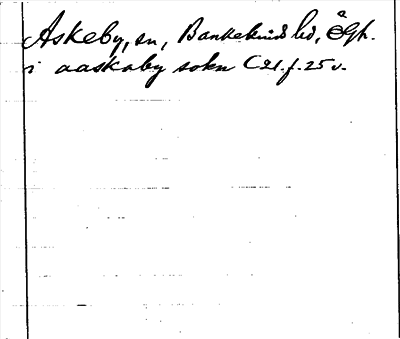 Askeby, sn, Bankekinds hd, Ögh.
i aaskaby sokn C21.f.25v.